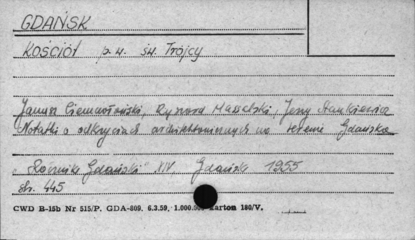 GDAŃSK
KOŚCIÓŁ p.w. Św. Trójcy
Janusz Ciemnołoński, Ryszard Massalski, Jerzy Stankiewicz
Notatki o odkryciach architektonicznych na terenie Gdańska
"Rocznik Gdański" XIV, Gdańsk 1955
str. 445
CWD B-15b Nr 515/P. GDA-809. 6.3.59. 1.000.000 karton 180/V.